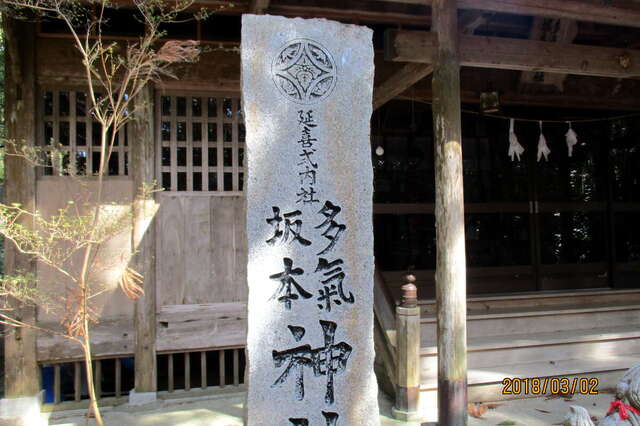 延喜式内社
多氣
坂本
神
2018/03/02